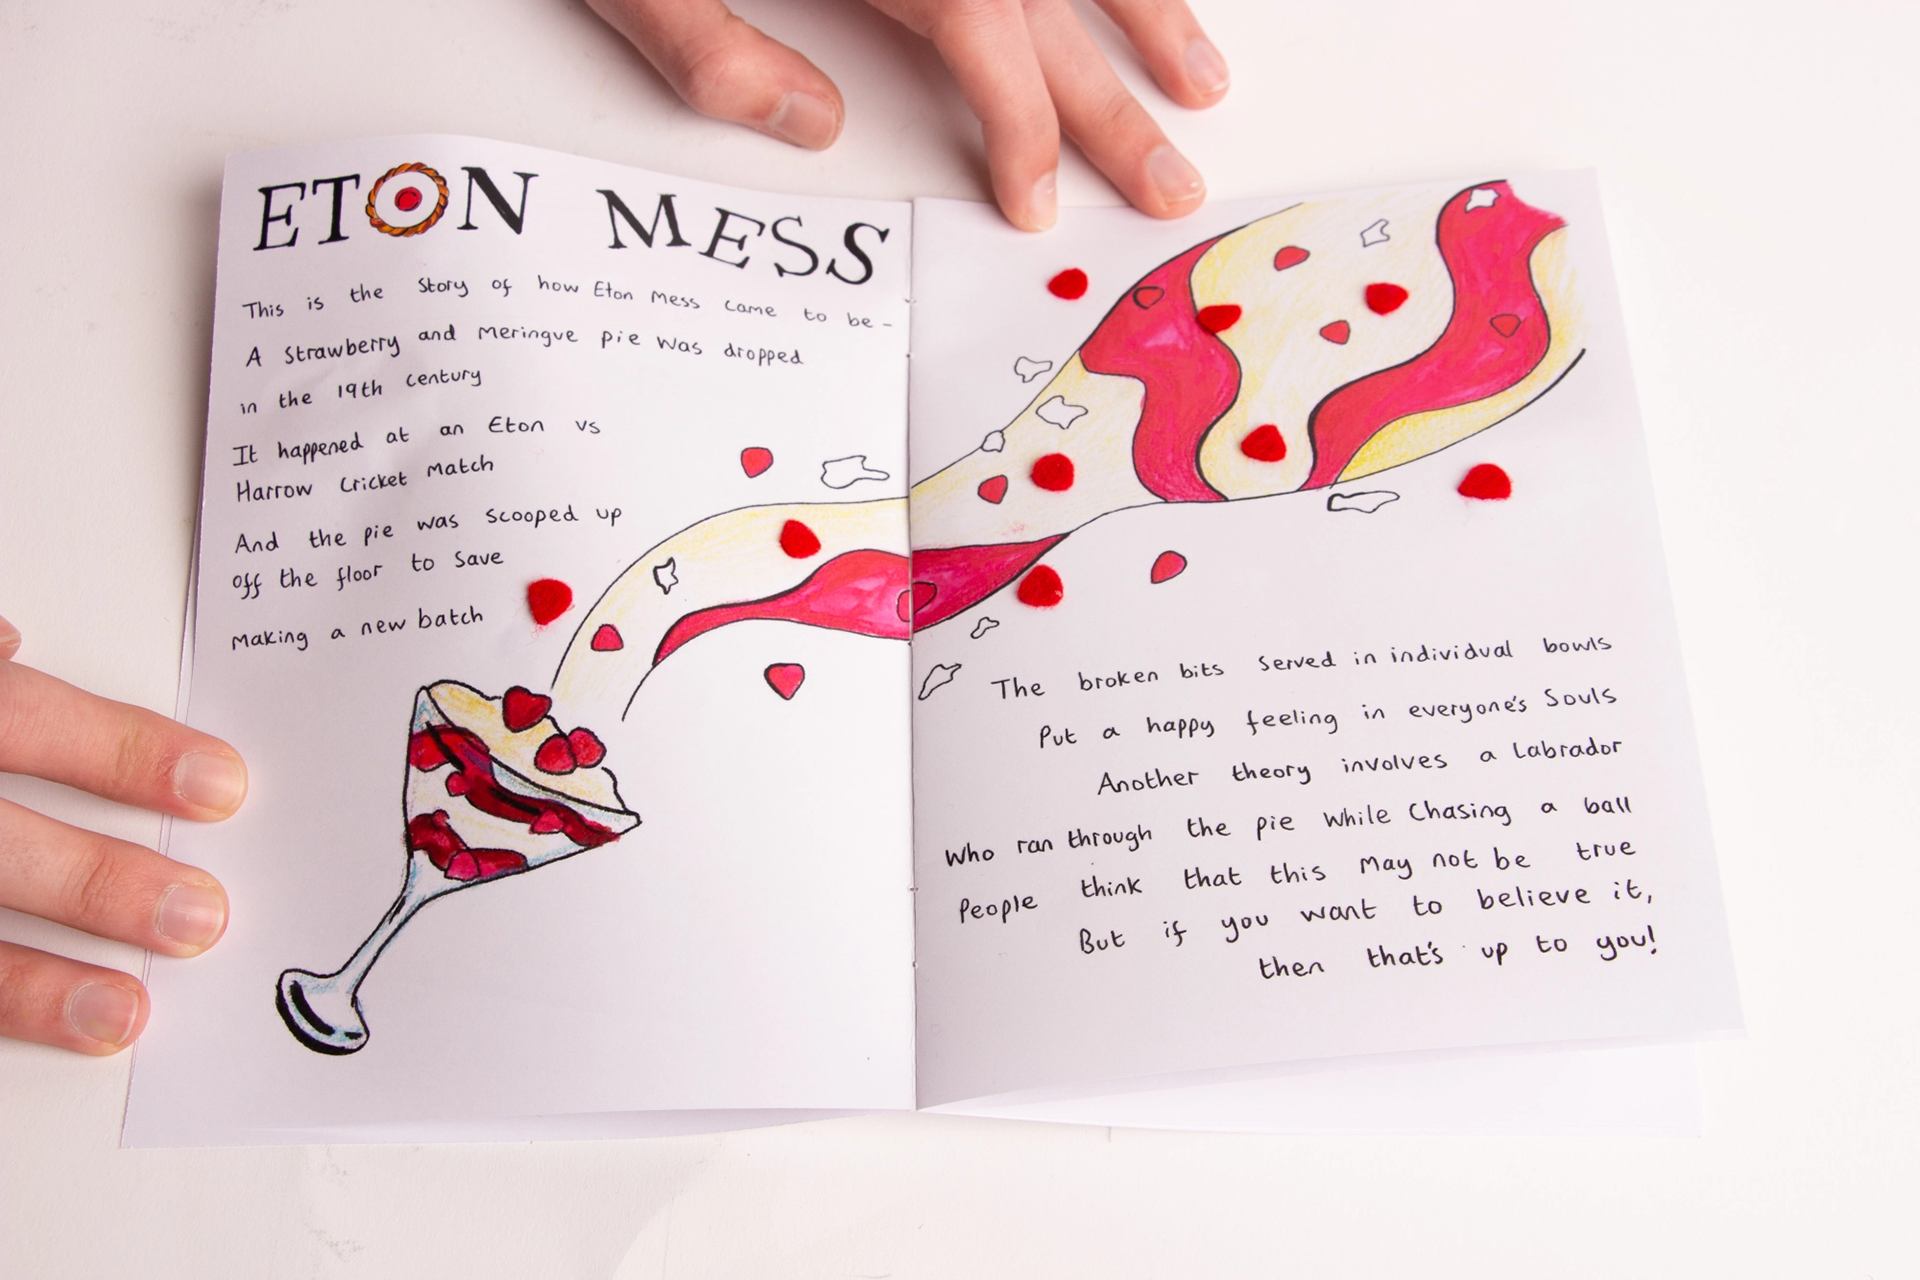 ETON MESS
This is the Story of how Eton Mess came to be -
A Strawberry and meringue pie was dropped
in the 19th century
It happened at an Eton vs
Harrow Cricket match
And the pie was scooped up
off the floor to save
making a new batch
The broken bits served in individual bowls
Put a happy feeling in everyone's Souls
Another theory involves a Labrador
Who ran through the pie while Chasing a ball
People think that this may not be true
But if you want to believe it,
then that's up to you!